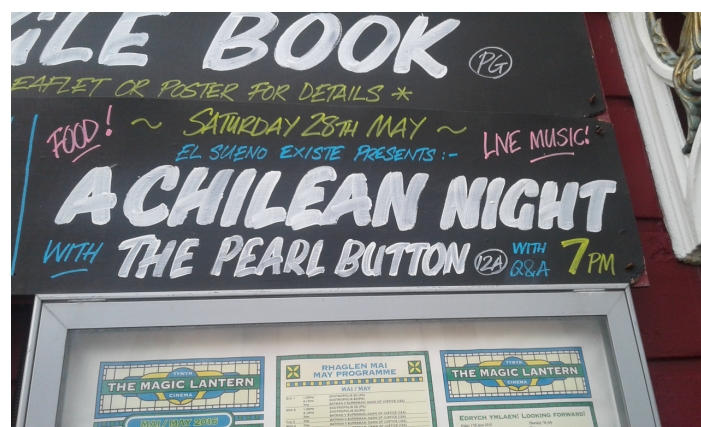 GLE BOOK PG
EAFLET OR POSTER FOR DETAILS *
FOOD! ~ SATURDAY 28TH MAY ~ LIVE MUSIC!
EL SUENO EXISTE PRESENTS :-
A CHILEAN NIGHT
WITH THE PEARL BUTTON 12A WITH Q&A 7PM
TYWYN
THE MAGIC LANTERN
CINEMA
MAI / MAY 2016
RHAGLEN MAI
MAY PROGRAMME
MAI / MAY
TYWYN
THE MAGIC LANTERN
CINEMA
EDRYCH YMLAEN! LOOKING FORWARD!